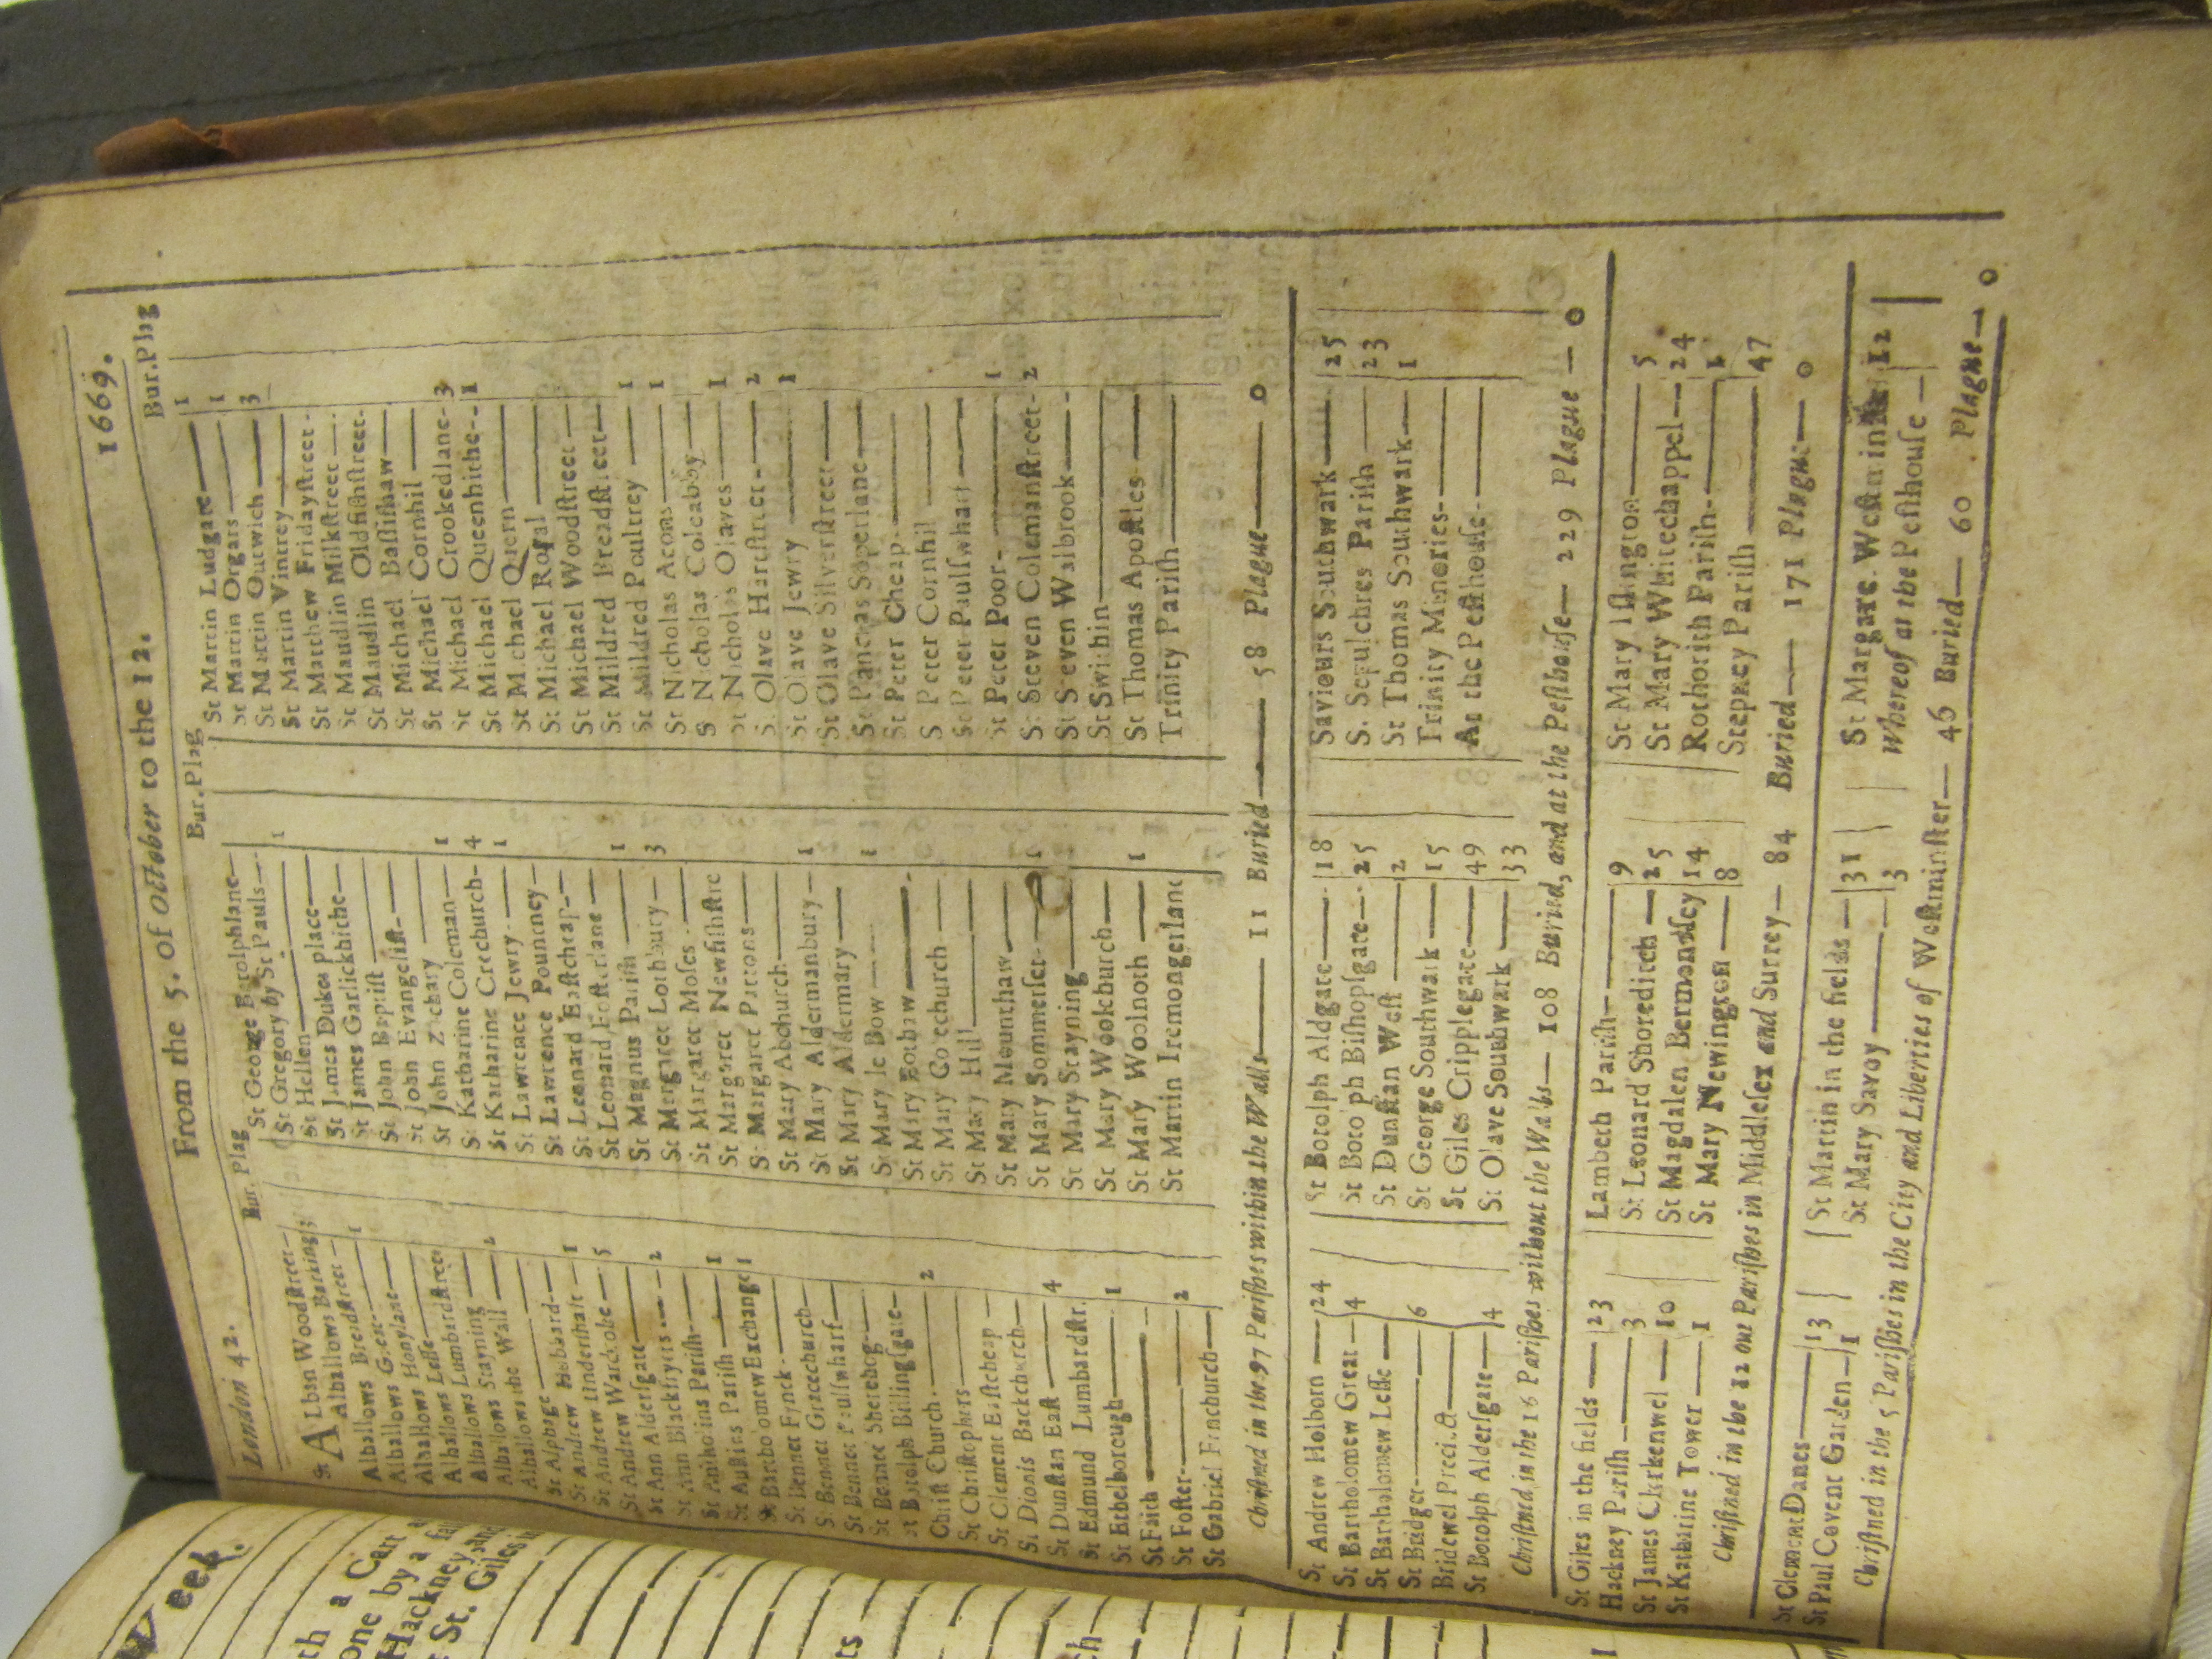 Week.
th a Cart
one by a fal
Hackney, and
t St. Giles in
ts
ch
London 42. From the 5. of October to the 12. 1669.
Bur. Plag
St ALban Woodſtreet—
Alhallows Barking 3
Alhallows Breadſtreet— 1
Alhallows Great—
Alhallows Honylane—
Alhallows Leſſe—
Alhallows Lumbardſtreet
Alhallows Stayning—
Alhallows the Wall— 2
St Alphage—
St Andrew Hubbard— 1
St Andrew Underſhaft— 5
St Andrew Wardrobe—
St Ann Alderſgate— 2
St Ann Blackfryers—
St Antholins Pariſh—
St Auſtins Pariſh— 1
St Bartholomew Exchange 1
St Bennet Fynck—
St Bennet Gracechurch—
St Bennet Paulſwharf—
St Bennet Sherehog—
St Botolph Billingſgate—
Chriſt Church— 2
St Chriſtophers—
St Clement Eaſtcheap—
St Dionis Backchurch—
St Dunſtan Eaſt— 4
St Edmund Lumbardſtr.
St Ethelborough— 1
St Faith—
St Foſter— 2
St Gabriel Fenchurch—
Bur. Plag
St George Botolphlane—
St Gregory by St Pauls— 1
St Hellen—
St James Dukes place—
St James Garlickhithe—
St John Baptiſt—
St John Evangeliſt—
St John Zachary— 1
St Katharine Coleman—
St Katharine Creechurch— 4
St Lawrence Jewry— 1
St Lawrence Pountney—
St Leonard Eaſtcheap—
St Leonard Foſterlane—
St Magnus Pariſh— 1
St Margaret Lothbury— 3
St Margaret Moſes—
St Margaret Newfiſhſtre
St Margaret Pattons—
St Mary Abchurch—
St Mary Aldermanbury— 1
St Mary Aldermary—
St Mary le Bow— 1
St Mary Bothaw—
St Mary Colechurch—
St Mary Hill—
St Mary Mounthaw—
St Mary Sommerſet— 1
St Mary Stayning—
St Mary Woolchurch—
St Mary Woolnoth— 1
St Martin Iremongerlane
Bur. Plag
St Martin Ludgate— 1
St Martin Orgars— 1
St Martin Outwich— 3
St Martin Vintrey—
St Matthew Fridayſtreet-
St Maudlin Milkſtreet—
St Maudlin Oldfiſhſtreet-
St Michael Baſſiſhaw—
St Michael Cornhil—
St Michael Crookedlane- 3
St Michael Queenhithe-- 1
St Michael Quern—
St Michael Royal—
St Michael Woodſtreet—
St Mildred Breadſtreet—
St Mildred Poultrey— 1
St Nicholas Acons— 1
S Nicholas Coleabby—
St Nicholas Olaves— 1
S. Olave Hartſtreet- 2
St Olave Jewry— 1
St Olave Silverſtreet—
St Pancras Soperlane—
St Peter Cheap—
S Peter Cornhil—
St Peter Paulſwharf—
St Peter Poor— 1
St Steven Colemanſtreet- 2
St Steven Walbrook—
St Swithin—
St Thomas Apoſtles—
Trinity Pariſh—
Chriſtned in the 97 Pariſhes within the Walls— 11 Buried— 58 Plague— 0
St Andrew Holborn— 24
St Bartholomew Great— 4
St Bartholomew Leſſe—
St Bridget— 6
Bridewel Precinct—
St Botolph Alderſgate— 4
St Botolph Aldgate— 18
St Botolph Biſhopſgate— 25
St Dunſtan Weſt— 2
St George Southwark— 15
St Giles Cripplegate— 49
St Olave Southwark— 33
Saviours Southwark— 25
S. Sepulchres Pariſh— 23
St Thomas Southwark— 1
Trinity Minories—
At the Peſthouſe—
Chriſtned in the 16 Pariſhes without the Walls— 108 Buried, and at the Peſthouſe— 229 Plague— 0
St Giles in the fields— 23
Hackney Pariſh— 3
St James Clerkenwel— 10
St Katharine Tower— 1
Lambeth Pariſh— 9
St Leonard Shoreditch— 25
St Magdalen Bermondſey 14
St Mary Newington— 8
St Mary Iſlington— 5
St Mary Whitechappel— 24
Rothorith Pariſh— 1
Stepney Pariſh— 47
Chriſtned in the 12 out Pariſhes in Middleſex and Surrey— 84 Buried— 171 Plague— 0
St Clement Danes— 13
St Paul Covent Garden— 1
St Martin in the fields— 31
St Mary Savoy— 3
St Margaret Weſtminſter 12
Whereof at the Peſthouſe—
Chriſtned in the 5 Pariſhes in the City and Liberties of Weſtminſter— 46 Buried— 60 Plague— 0